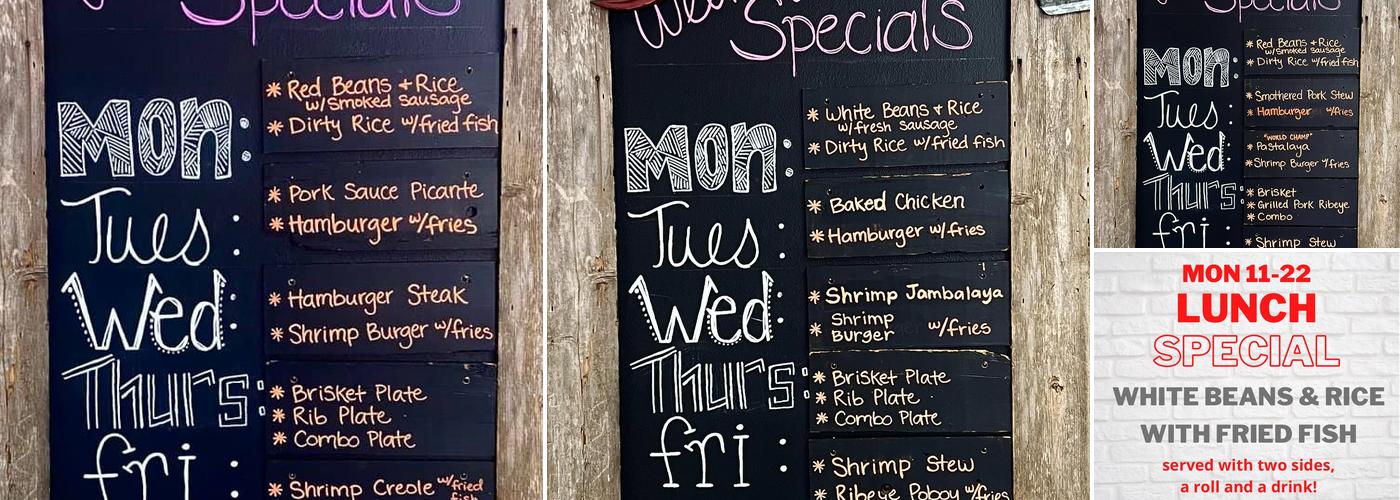 Specials
Mon:
* Red Beans + Rice
w/smoked sausage
* Dirty Rice w/fried fish
Tues:
* Pork Sauce Picante
* Hamburger w/fries
Wed:
* Hamburger Steak
* Shrimp Burger w/fries
Thurs:
* Brisket Plate
* Rib Plate
* Combo Plate
fri:
* Shrimp Creole w/fried
fish
Specials
Mon:
* White Beans + Rice
w/fresh sausage
* Dirty Rice w/fried fish
Tues:
* Baked Chicken
* Hamburger w/fries
Wed:
* Shrimp Jambalaya
* Shrimp
Burger w/fries
Thurs:
* Brisket Plate
* Rib Plate
* Combo Plate
fri:
* Shrimp Stew
* Ribeye Poboy w/fries
Specials
Mon:
* Red Beans + Rice
w/smoked sausage
* Dirty Rice w/fried fish
Tues:
* Smothered Pork Stew
* Hamburger w/fries
Wed:
"WORLD CHAMP"
* Pastalaya
* Shrimp Burger w/fries
Thurs:
* Brisket
* Grilled Pork Ribeye
* Combo
fri
* Shrimp Stew
MON 11-22
LUNCH
SPECIAL
WHITE BEANS & RICE
WITH FRIED FISH
served with two sides,
a roll and a drink!